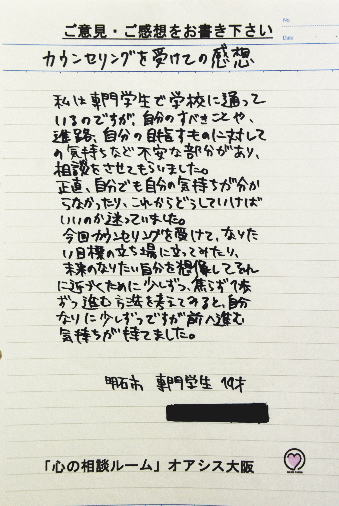 ご意見・ご感想をお書き下さい
No.
Date
カウンセリングを受けての感想
私は専門学生で学校に通って
いるのですが、自分のすべきことや、
進路、自分の目指すものに対して
の気持ちなど不安な部分があり、
相談をさせてもらいました。
正直、自分でも自分の気持ちが分か
らなかったり、これからどうしていけば
いいのか迷っていました。
今回カウンセリングを受けて、なりた
い目標の立ち場に立ってみたり、
未来のなりたい自分を想像してそれ
に近づくために少しずつ、焦らず1歩
ずつ進む方法を考えてみると、自分
なりに少しずつですが前へ進む
気持ちが持てました。
明石市 専門学生 19才
「心の相談ルーム」オアシス大阪